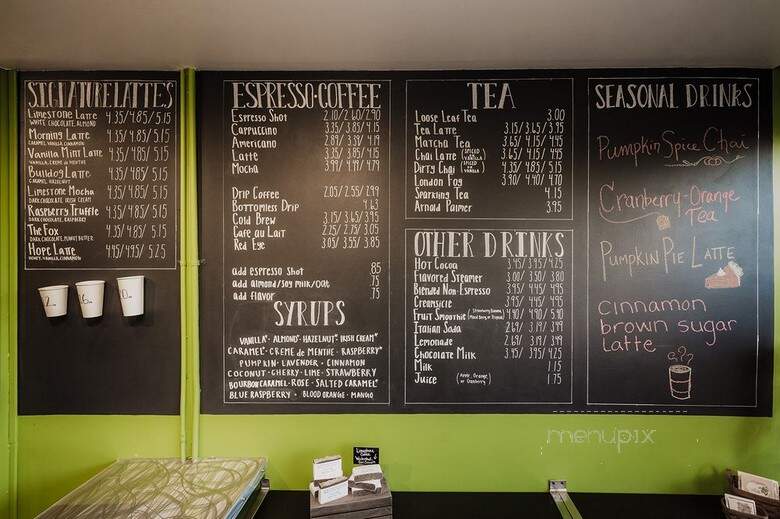 SIGNATURE LATTES
Limestone Latte 4.35/4.85/5.15
WHITE CHOCOLATE, ALMOND
Morning Latte 4.35/4.85/5.15
CARAMEL, VANILLA, CINNAMON
Vanilla Mint Latte 4.35/4.85/5.15
VANILLA, CREME de MENTHE
Bulldog Latte 4.35/4.85/5.15
CARAMEL, HAZELNUT
Limestone Mocha 4.35/4.85/5.15
DARK CHOCOLATE, IRISH CREAM
Raspberry Truffle 4.35/4.85/5.15
DARK CHOCOLATE, RASPBERRY
The Fox 4.35/4.85/5.15
DARK CHOCOLATE, PEANUT BUTTER
Hope Latte 4.45/4.95/5.25
HONEY, VANILLA, CINNAMON
ESPRESSO·COFFEE
Espresso Shot 2.10/2.60/2.90
Cappuccino 3.35/3.85/4.15
Americano 2.89/3.39/4.19
Latte 3.35/3.85/4.15
Mocha 3.99/4.49/4.79
Drip Coffee 2.05/2.55/2.99
Bottomless Drip 4.63
Cold Brew 3.15/3.65/3.95
Cafe au Lait 2.25/2.75/3.05
Red Eye 3.05/3.55/3.85
add espresso Shot .85
add almond/soy Milk/Oat .75
add flavor .75
SYRUPS
VANILLA* · ALMOND* · HAZELNUT* · IRISH CREAM*
CARAMEL* · CREME de MENTHE · RASPBERRY*
PUMPKIN · LAVENDER · CINNAMON
COCONUT · CHERRY · LIME · STRAWBERRY
BOURBON CARAMEL · ROSE · SALTED CARAMEL*
BLUE RASPBERRY · BLOOD ORANGE · MANGO
TEA
Loose Leaf Tea 3.00
Tea Latte 3.15/3.65/3.95
Matcha Tea 3.65/4.15/4.45
Chai Latte (SPICED or VANILLA) 3.65/4.15/4.45
Dirty Chai (SPICED or VANILLA) 4.35/4.85/5.15
London Fog 3.90/4.40/4.70
Sparkling Tea 4.15
Arnold Palmer 3.95
OTHER DRINKS
Hot Cocoa 3.45/3.95/4.25
Flavored Steamer 3.00/3.50/3.80
Blended Non-Espresso 3.95/4.45/4.95
Creamsicle 3.95/4.45/4.95
Fruit Smoothie (Strawberry Banana, Mixed Berry or Tropical) 4.40/4.90/5.40
Italian Soda 2.69/3.19/3.49
Lemonade 2.69/3.19/3.49
Chocolate Milk 3.45/3.95/4.25
Milk 1.15
Juice (Apple, Orange, or Cranberry) 1.75
SEASONAL DRINKS
Pumpkin Spice Chai
Cranberry-Orange
Tea
Pumpkin Pie Latte
cinnamon
brown sugar
latte
menupix